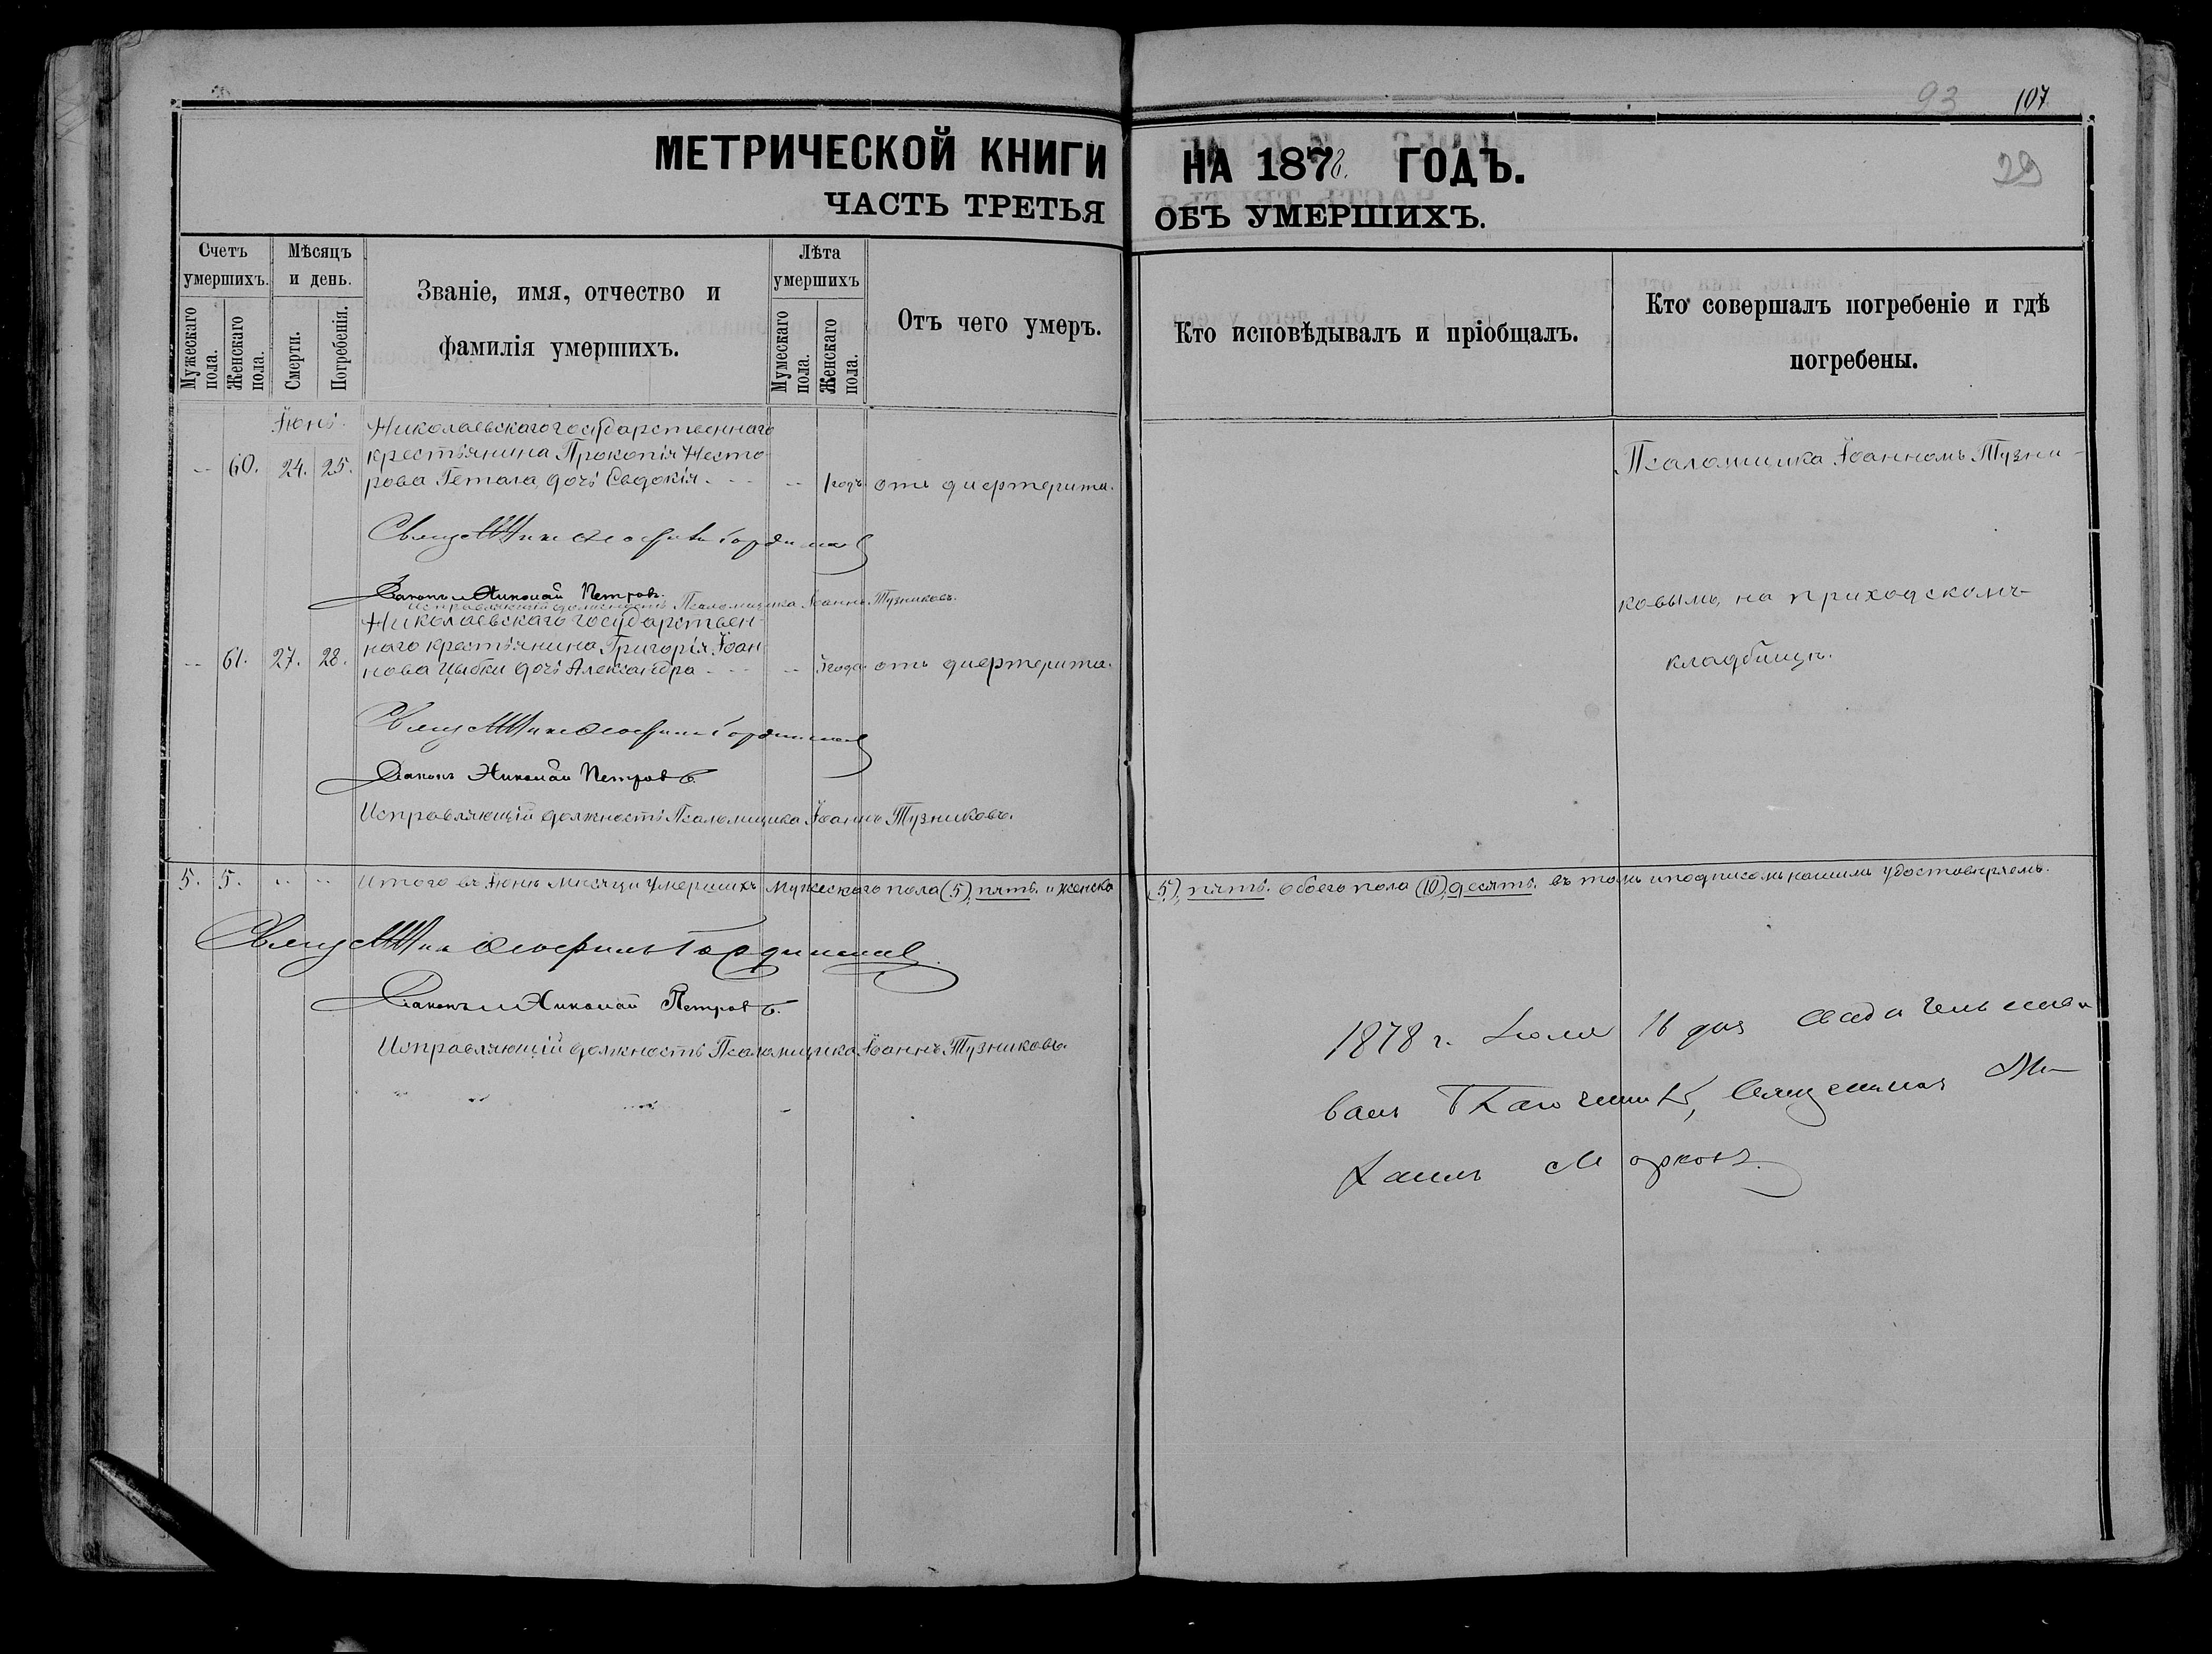 93 107
29
МЕТРИЧЕСКОЙ КНИГИ НА 1878. ГОДЪ.
ЧАСТЬ ТРЕТЬЯ ОБЪ УМЕРШИХЪ.
Счетъ умершихъ.
Мужескаго пола.
Женскаго пола.
Мѣсяцъ и день.
Смерти.
Погребенія.
Званіе, имя, отчество и
фамилія умершихъ.
Лѣта умершихъ
Мумескаго пола.
Женскаго пола.
Отъ чего умеръ.
Кто исповѣдывалъ и пріобщалъ.
Кто совершалъ погребеніе и гдѣ
погребены.
Іюнь. Николаевскаго государственнаго
крестьянина Прокопія Несто
60. 24. 25. рова Гетала, дочь Евдокія. 1 годъ отъ дифтерита.
Псаломщика Іоанномъ Тузни-
Діаконъ Николай Петровъ.
Исправляющій должность Псаломщика Іоаннъ Тузниковъ.
ковымъ, на приходскомъ
Николаевскаго государствен-
наго крестьянина Григорія Іоан
61. 27. 28. нова Цыбки дочь Александра года отъ дифтерита.
кладбищѣ.
Діаконъ Николай Петровъ.
Исправляющій должность Псаломщика Іоаннъ Тузниковъ.
5. 5. Итого въ Іюнѣ мѣсяцѣ умершихъ Мужескаго пола (5) пять. и женска (5) пять. обоего пола (10) десять. въ томъ и подписомъ нашимъ удостовѣряемъ.
Діаконъ Николай Петровъ.
Исправляющій должность Псаломщика Іоаннъ Тузниковъ.
1878 г. Іюля 16 дня Свидѣтельство
валъ Священникъ Ми
хаилъ Марковъ.